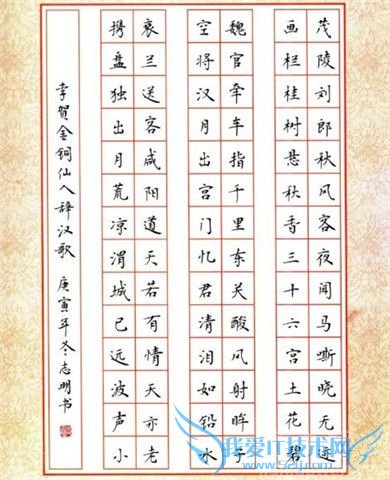 茂陵刘郎秋风客夜闻马嘶晓无迹
画栏桂树悬秋香三十六宫土花碧
魏官牵车指千里东关酸风射眸子
空将汉月出宫门忆君清泪如铅水
衰兰送客咸阳道天若有情天亦老
携盘独出月荒凉渭城已远波声小
李贺金铜仙人辞汉歌 庚寅年冬志明书
我爱IT技术网